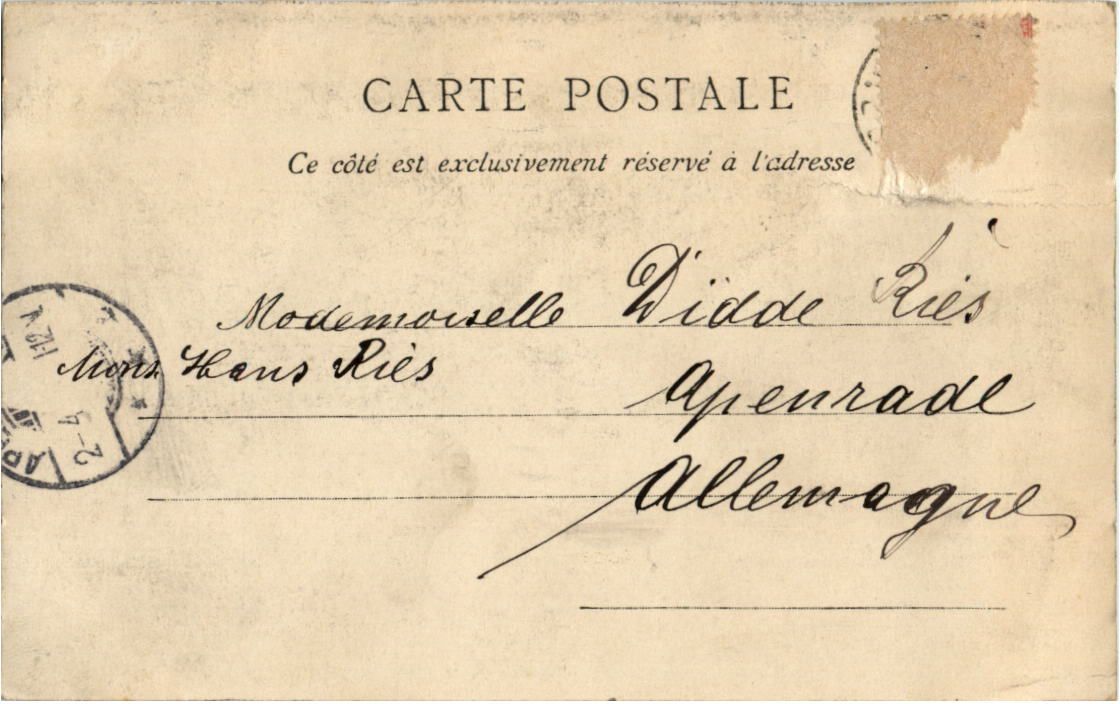 CARTE POSTALE
Ce côté est exclusivement réservé à l'adresse
Mademoiselle Didde Riès
Mons Hans Riès
Apenrade
Allemagne
2-4